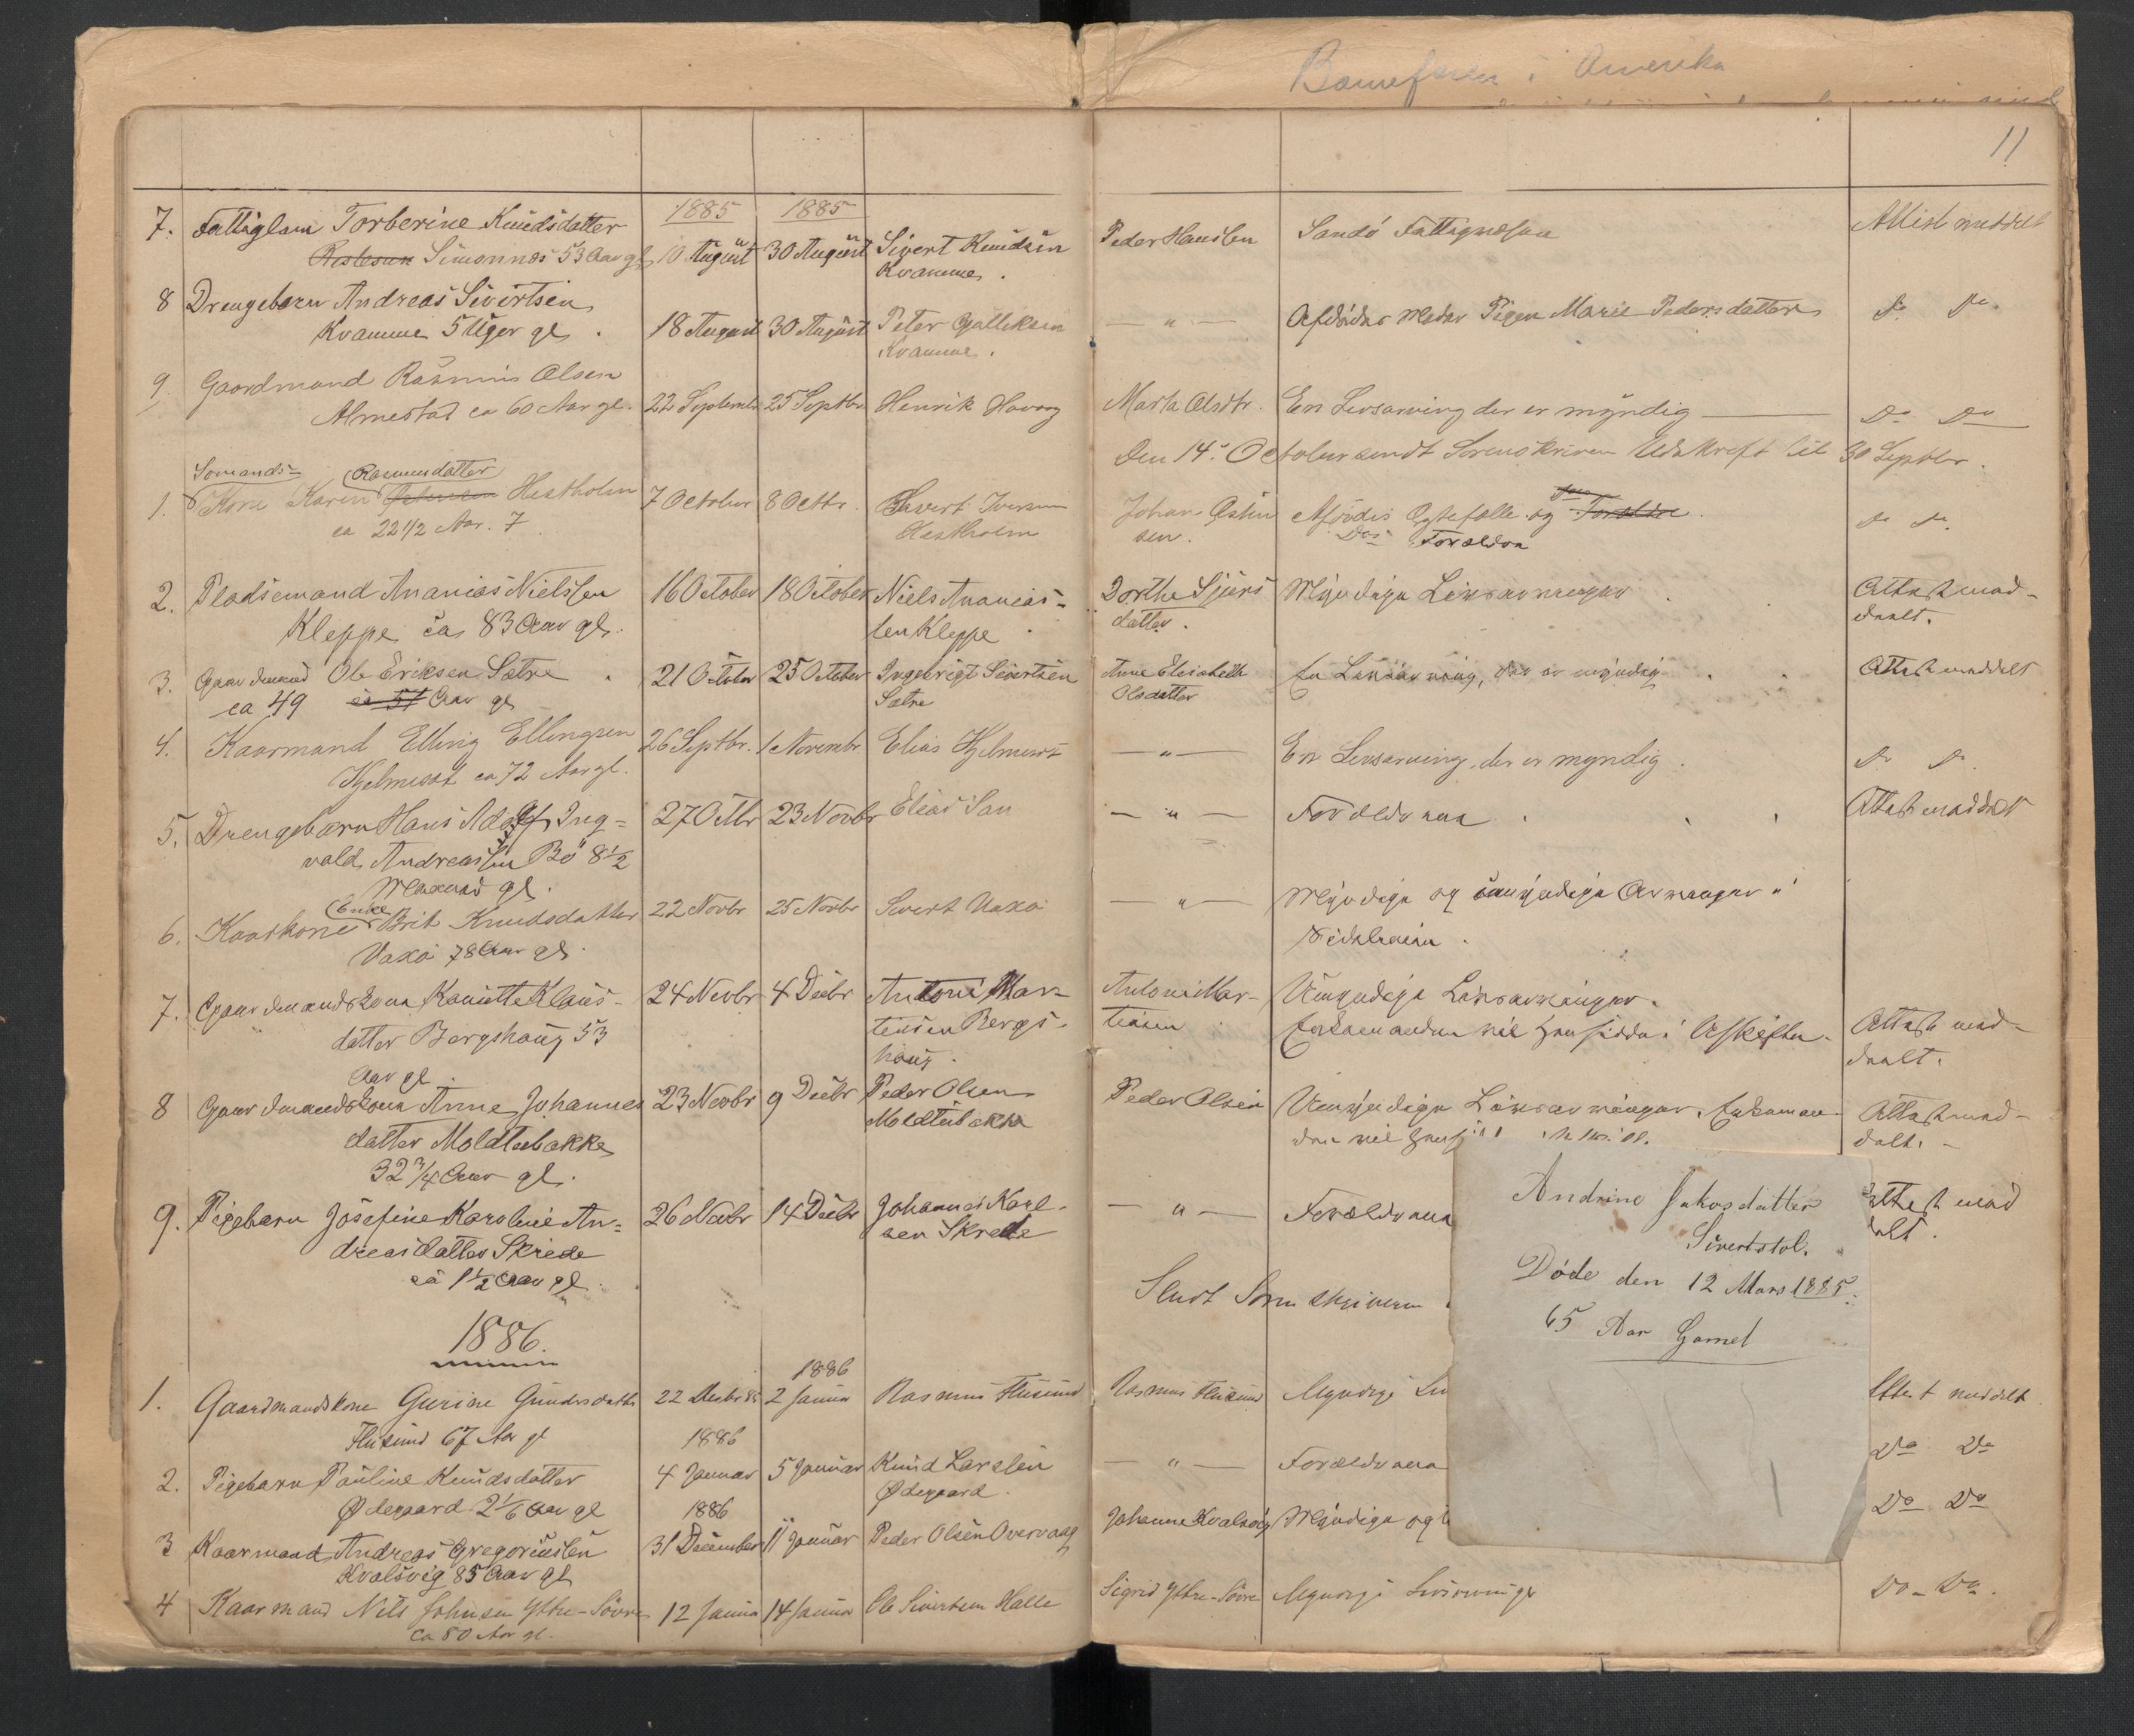 i Amerika
11
1885 1885
7. Fattiglem Torberine Knudsdatter
Simonnæs 53 Aar gl. 10 August 30 August Sivert Knudsen Kvamme. Peder Hanssen Sandö Fattigvæsen Attest meddelt
8 Drengebarn Andreas Sivertsen
Kvamme 5 Uger gl. 18 August 30 August Peter Gulliksen Kvamme. — " — Afdödes Moder Pigen Marie Pedersdatter Do Do.
9. Gaardmand Rasmus Olsen
Almestad ca 60 Aar gl. 22 September 25 Septbr. Henrik Havog Marta Olsdtr. En Livsarving der er myndig Do Do
Den 14. October sendt Sorenskriveren Udskrift til 30 Septbr.
1. Kone Karen Rasmusdatter Hestholm
ca 22 1/2 Aar. 7 October 8 Octbr. Sivert Iversen Hestholm Johan Østen sen. Afdödes Ægtefælle og Forældre Do Do.
2. Pladsemand Ananias Nielssen
Kleppe ca 83 Aar gl. 16 October 18 October Niels Ananias-sen Kleppe Dorthe Sjurs datter. Myndige Livsarvinger. Attest med-deelt.
3. Gaardmand Ole Eriksen Sætre
ca 49 Aar gl 21 October 25 October Ingebrigt Sivertsen Sætre Anne Elisabeth Olsdatter En Livsarving, der er myndig Attest meddelt
4. Kaarmand Elling Ellingsen
Hjelmeset ca 72 Aar gl. 26 Septbr. 1 Novembr. Elias Hjelmeset — " — En Livsarving, der er myndig. Do Do.
5. Drengebarn Hans Adolf Ing=
vald Andreassen Bö 8 1/2
Maaned gl. 27 Octbr 23 Novbr Elias San — " — Forældrene Attest meddelt
6. Kaarkone Enke Brit Knudsdatter
Vaxö 78 Aar gl. 22 Novbr 25 Novbr Sivert Vaxö — " — Myndige og umyndige Arvinger i Sidelinien.
7. Gaardmandskone Klaus-
datter Bergshaug 53
Aar gl. 24 Novbr 4 Decbr Antoni Mar-tinsen Bergs-haug. Antoni Mar-tinsen Umyndige Livsarvinger.
Enkemanden vil hensidde i Uskiftet. Attest med-deelt.
8 Gaardmandskone Anne Johannes
datter Moldtubakke
32 3/4 Aar gl. 23 Novbr 9 Decbr Peder Olsen Moldtubakke Peder Olsen Umyndige Livsarvinger. Enkeman-den vil Attest med-delt.
9. Pigebarn Josefine Karoline An=
dreasdatter Skrede
ca 1 1/2 Aar gl. 26 Novbr 14 Decbr Johannes Karl-sen Skrede — " — Forældrene
Sendt Sorenskriveren
Andrine Jakosdatter
Sivertstøl.
Döde den 12 Mars 1885.
65 Aar Gamel
1886.
1886
1. Gaardmandskone Gurine Gundersdatter
Flusund 67 Aar gl 22 Decbr 85 2 Januar Rasmus Flusund Rasmus Flusund Myndige meddelt
1886
2. Pigebarn Pauline Knudsdatter
Ødegaard 2 1/6 Aar gl 4 Januar 5 Januar Knud Larssen Ødegaard. — " — Forældrene Do Do
1886
3 Kaarmand Andreas Gregoriussen
Kvalsvig 85 Aar gl. 31 December 11 Januar Peder Olsen Overvaag Johanne Kvalsvig Myndige og Do Do
4 Kaarmand Nils Johnsen Ytre-Sövre
ca 80 Aar gl. 12 Januar 14 Januar Ole Sivertsen Halle Sigrid Ytre-Sövre Myndige Livsarvinger Do - Do.